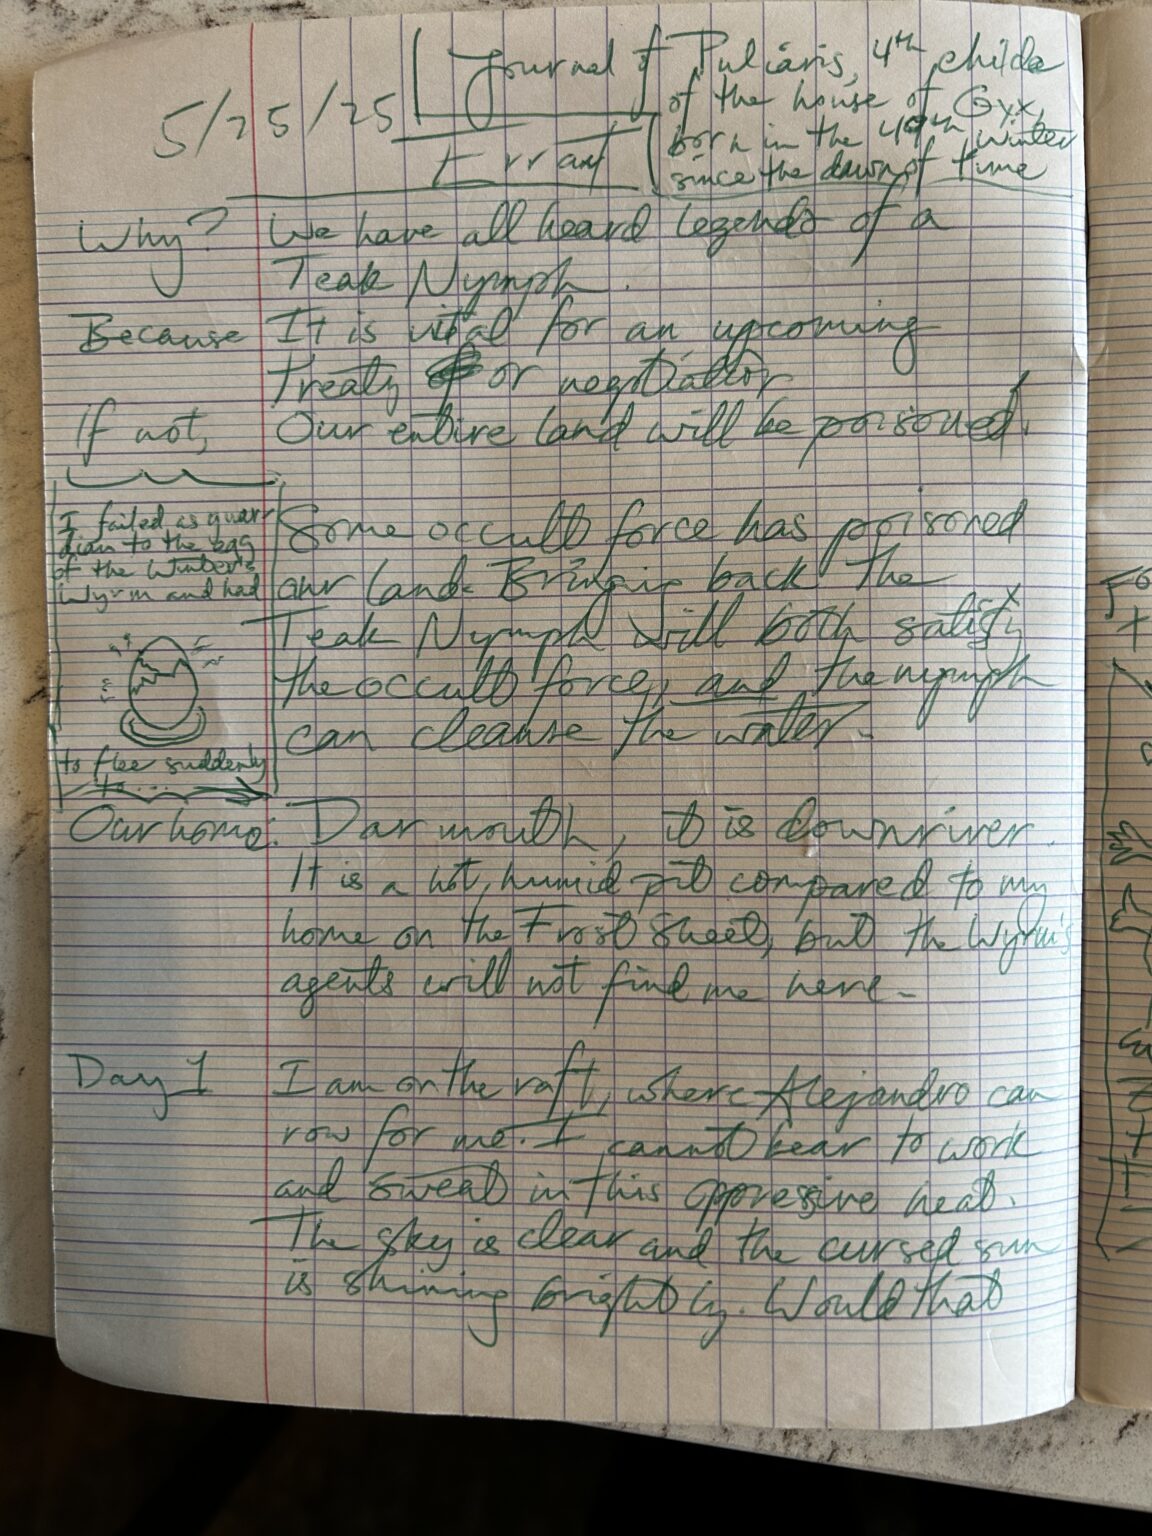 5/25/25
Journal of Puliaris, 4th childe
of the house of Gyx,
born in the 49th Winter
since the dawn of time
Errant
Why? We have all heard legends of a
Teak Nymph.
Because It is vital for an upcoming
treaty or negotiation
If not, Our entire land will be poisoned!
I failed as guar
dian to the egg
of the Winter's
Wyrm and had
to flee suddenly
to...
Some occult force has poisoned
our land. Bringing back the
Teak Nymph will both satisfy
the occult force, and the nymph
can cleanse the water.
Our home: Darmouth, it is downriver.
It is a hot, humid pit compared to my
home on the Frost Sheet, but the Wyrm's
agents will not find me here.
Day 1 I am on the raft, where Alejandro can
row for me. I cannot bear to work
and sweat in this oppressive heat.
The sky is clear and the cursed sun
is shining brightly. Would that